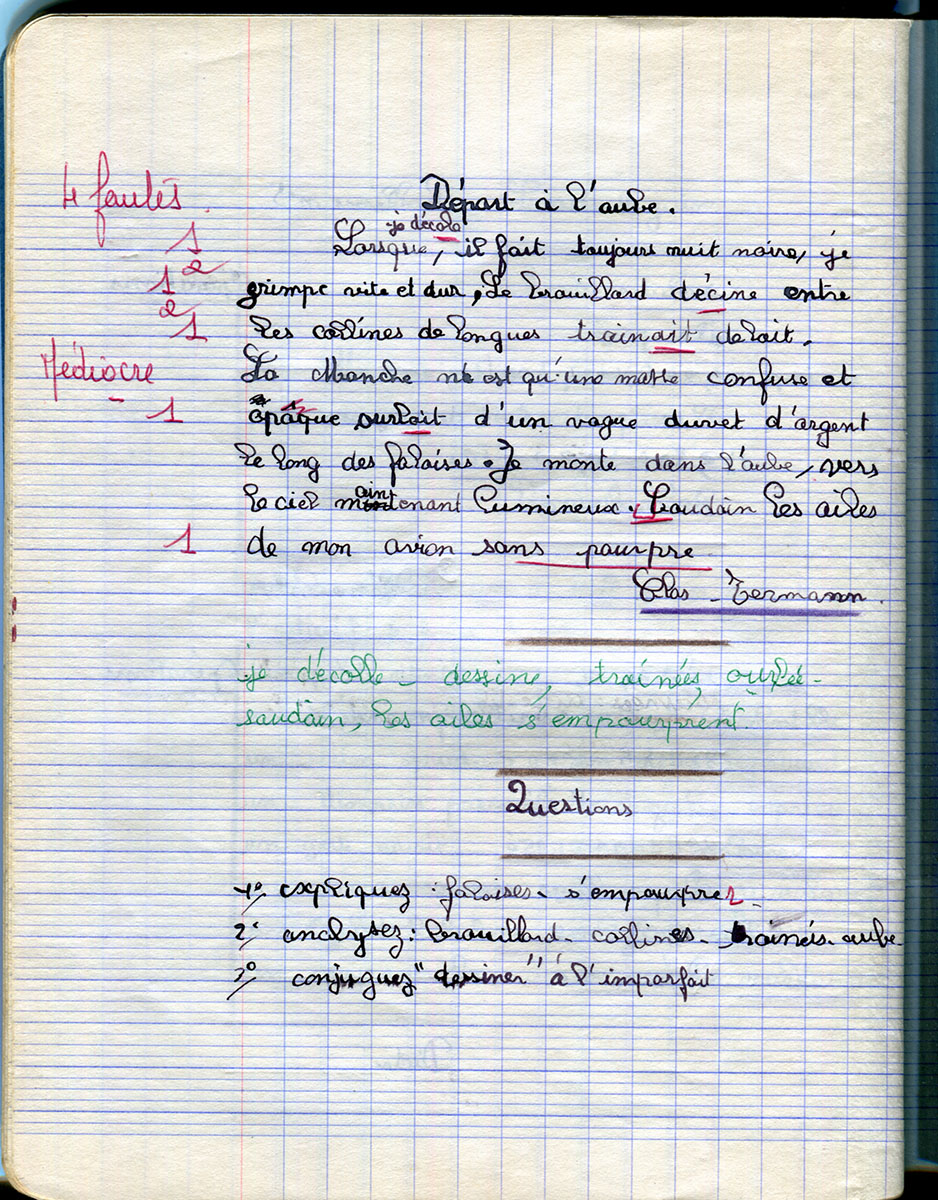 4 fautes
Départ à l'aube.
je décola
1 Lorsque, il fait toujours nuit noire, je
2
1 grimpe vite et dur, Le brouillard décine entre
2
1 les collines de longues trainait delait.
Médiocre La Manche n'est qu'une masse confuse et
1 opaque surlait d'un vague duvet d'argent
le long des falaises. Je monte dans l'aube, vers
aint
le ciel maintenant lumineux. Soudain les ailes
1 de mon avion sans pourpre
Clos-Termann.
je décolle - dessine, trainées, ourlé-
soudain, les ailes s'empourprent.
Questions
1° expliquez : falaises - s'empourprer
2° analysez : brouillard - collines - trainés - aube
3° conjuguez "dessiner" à l'imparfait